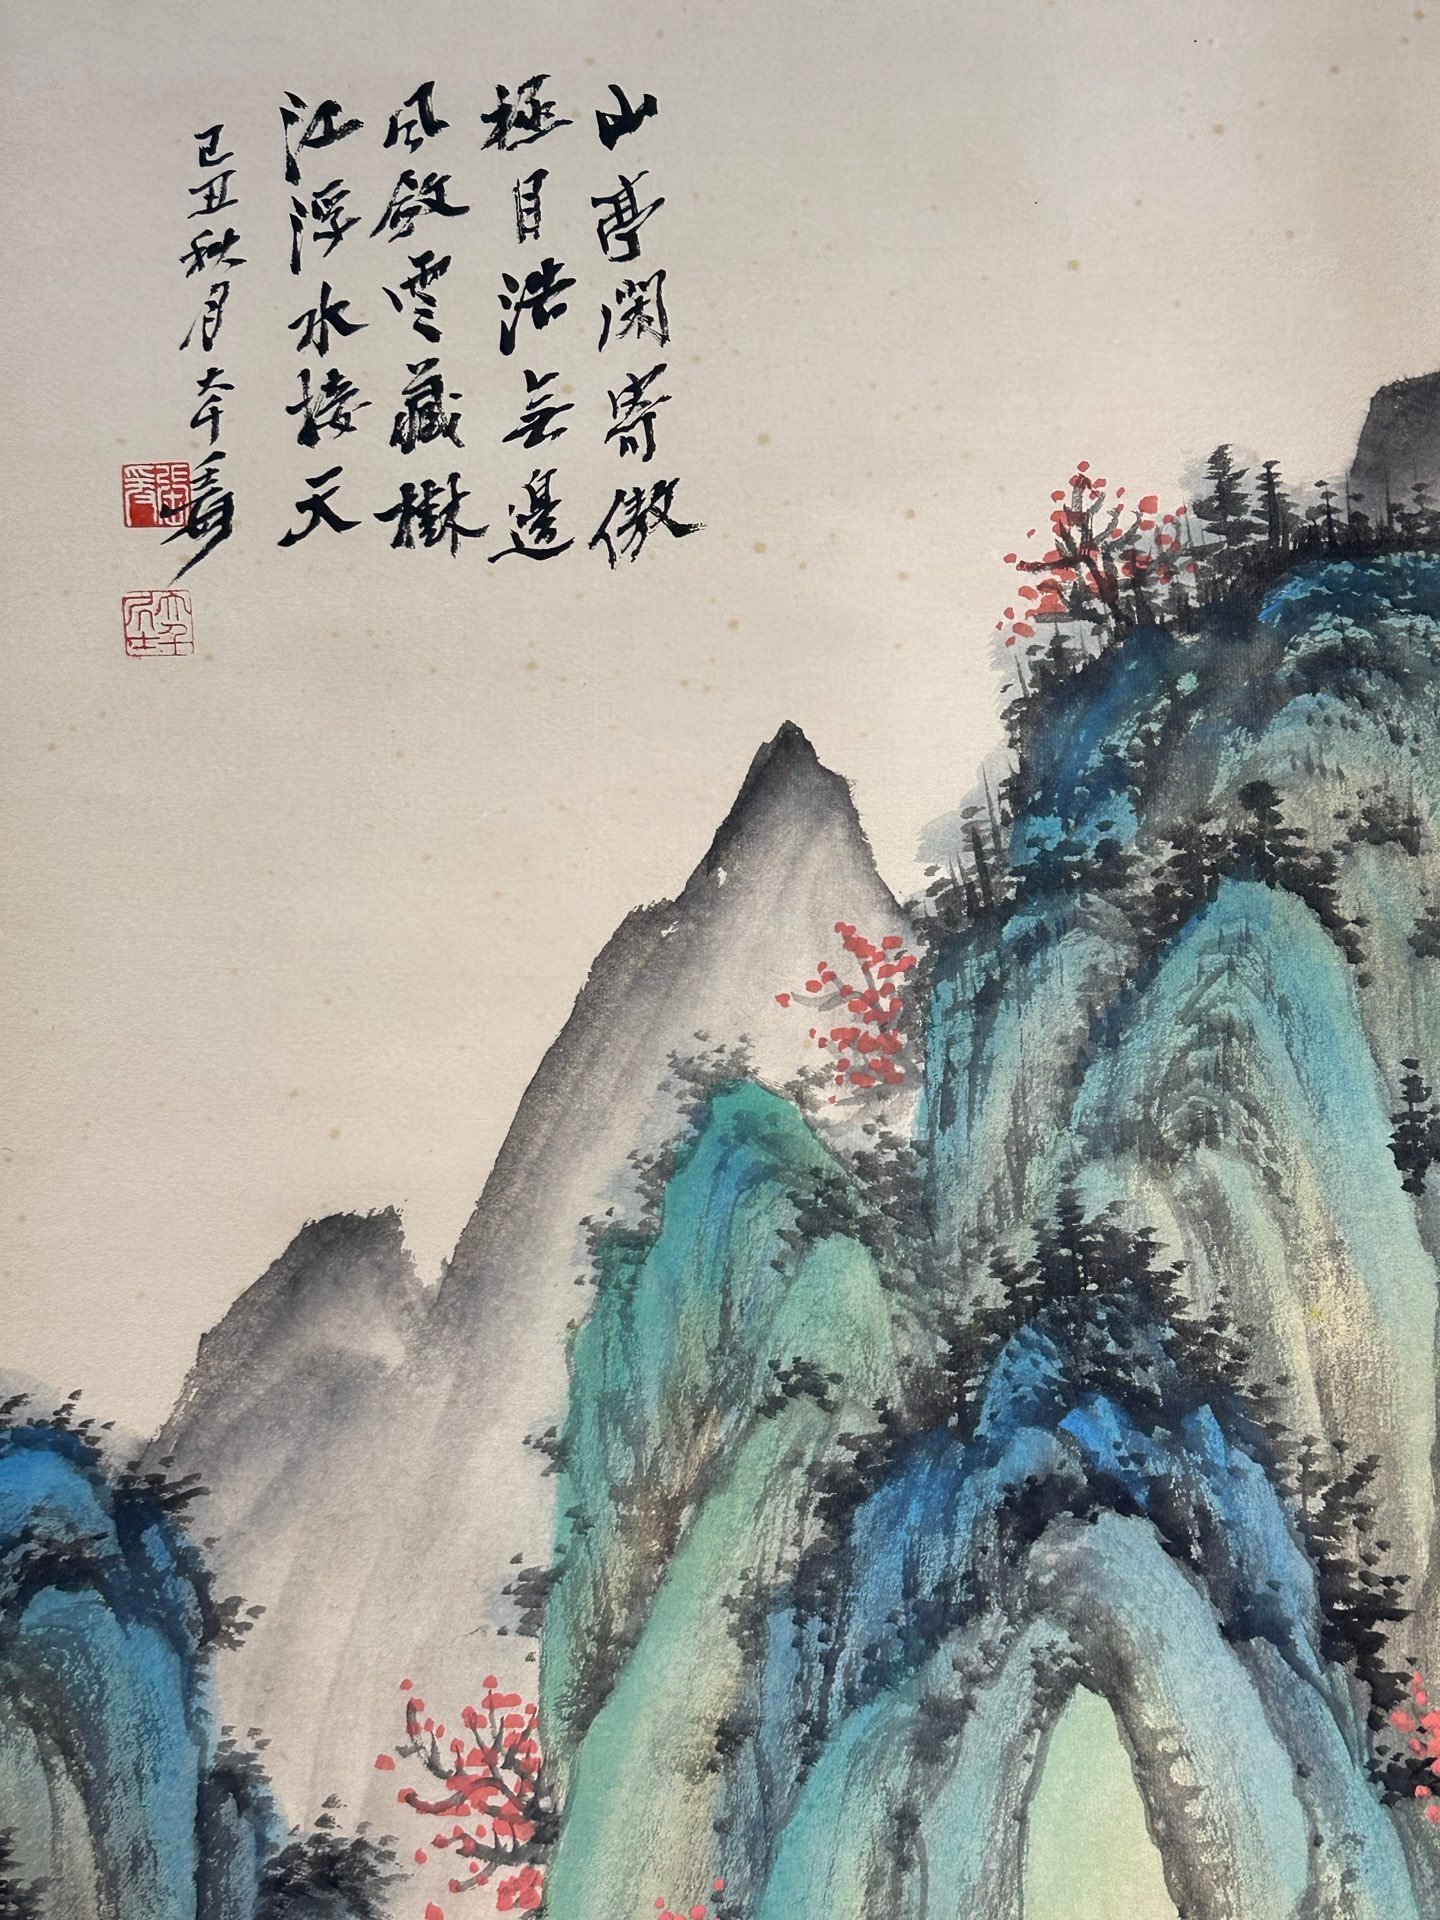 山亭閑寄傲
極目浩無邊
風斂雲藏樹
江浮水接天
己丑秋月大千爰
張爰
大千居士